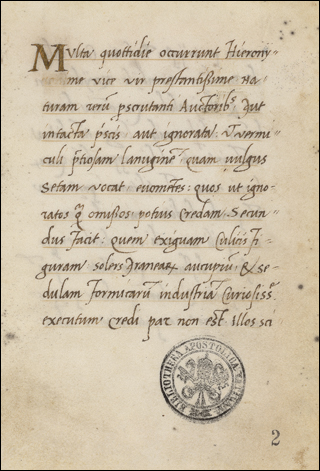 Multa quottidie occurrunt Hierony-
me vicr vir prestantissime Na-
turam rerū pscrutanti Auctorib' Aut
intacta pscis aut ignorata. Vt vermi-
culi ptiosam lanuginē quam vulgus
Setam vocat, evometes: quos ut igno-
ratos q̄ omissos potius Credam. Secun-
dus facit: quem exiguam Culicis fi-
guram solers Aranearꝝ aucupiū, & se-
dulam formicarū industriā Curiosiss.
executum Credi par non est. Illos sci
BIBLIOTHECA APOSTOLICA VATICANA
2